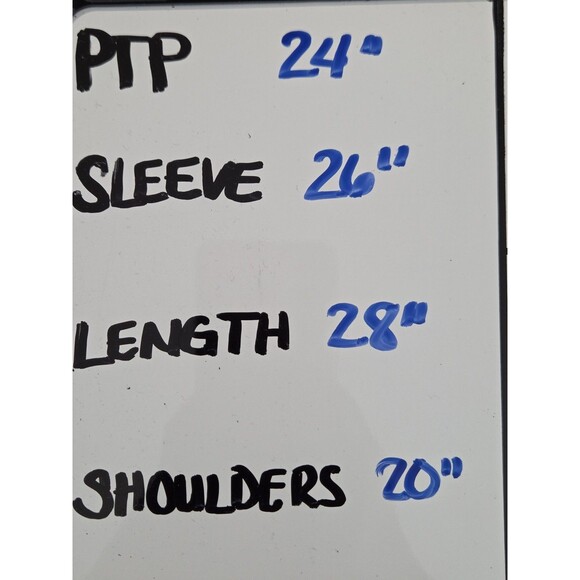 PTP 24"
SLEEVE 26"
LENGTH 28"
SHOULDERS 20"